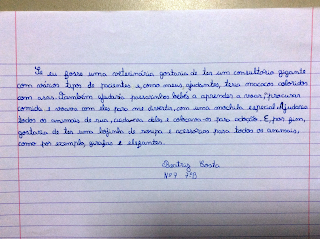 Se eu fosse uma veterinária gostaria de ter um consultório gigante
com vários tipos de pacientes e, como meus ajudantes, teria macacos coloridos
com asas. Também ajudaria passarinhos bebês a aprender a voar, procurar
comida e voaria com eles para me divertir, com uma mochila especial. Ajudaria
todos os animais de rua, cuidava deles e colocava-os para adoção. E, por fim,
gostaria de ter uma lojinha de roupa e acessórios para todos os animais,
como por exemplo, girafas e elefantes.
Beatriz Costa
Nº7 7ºB